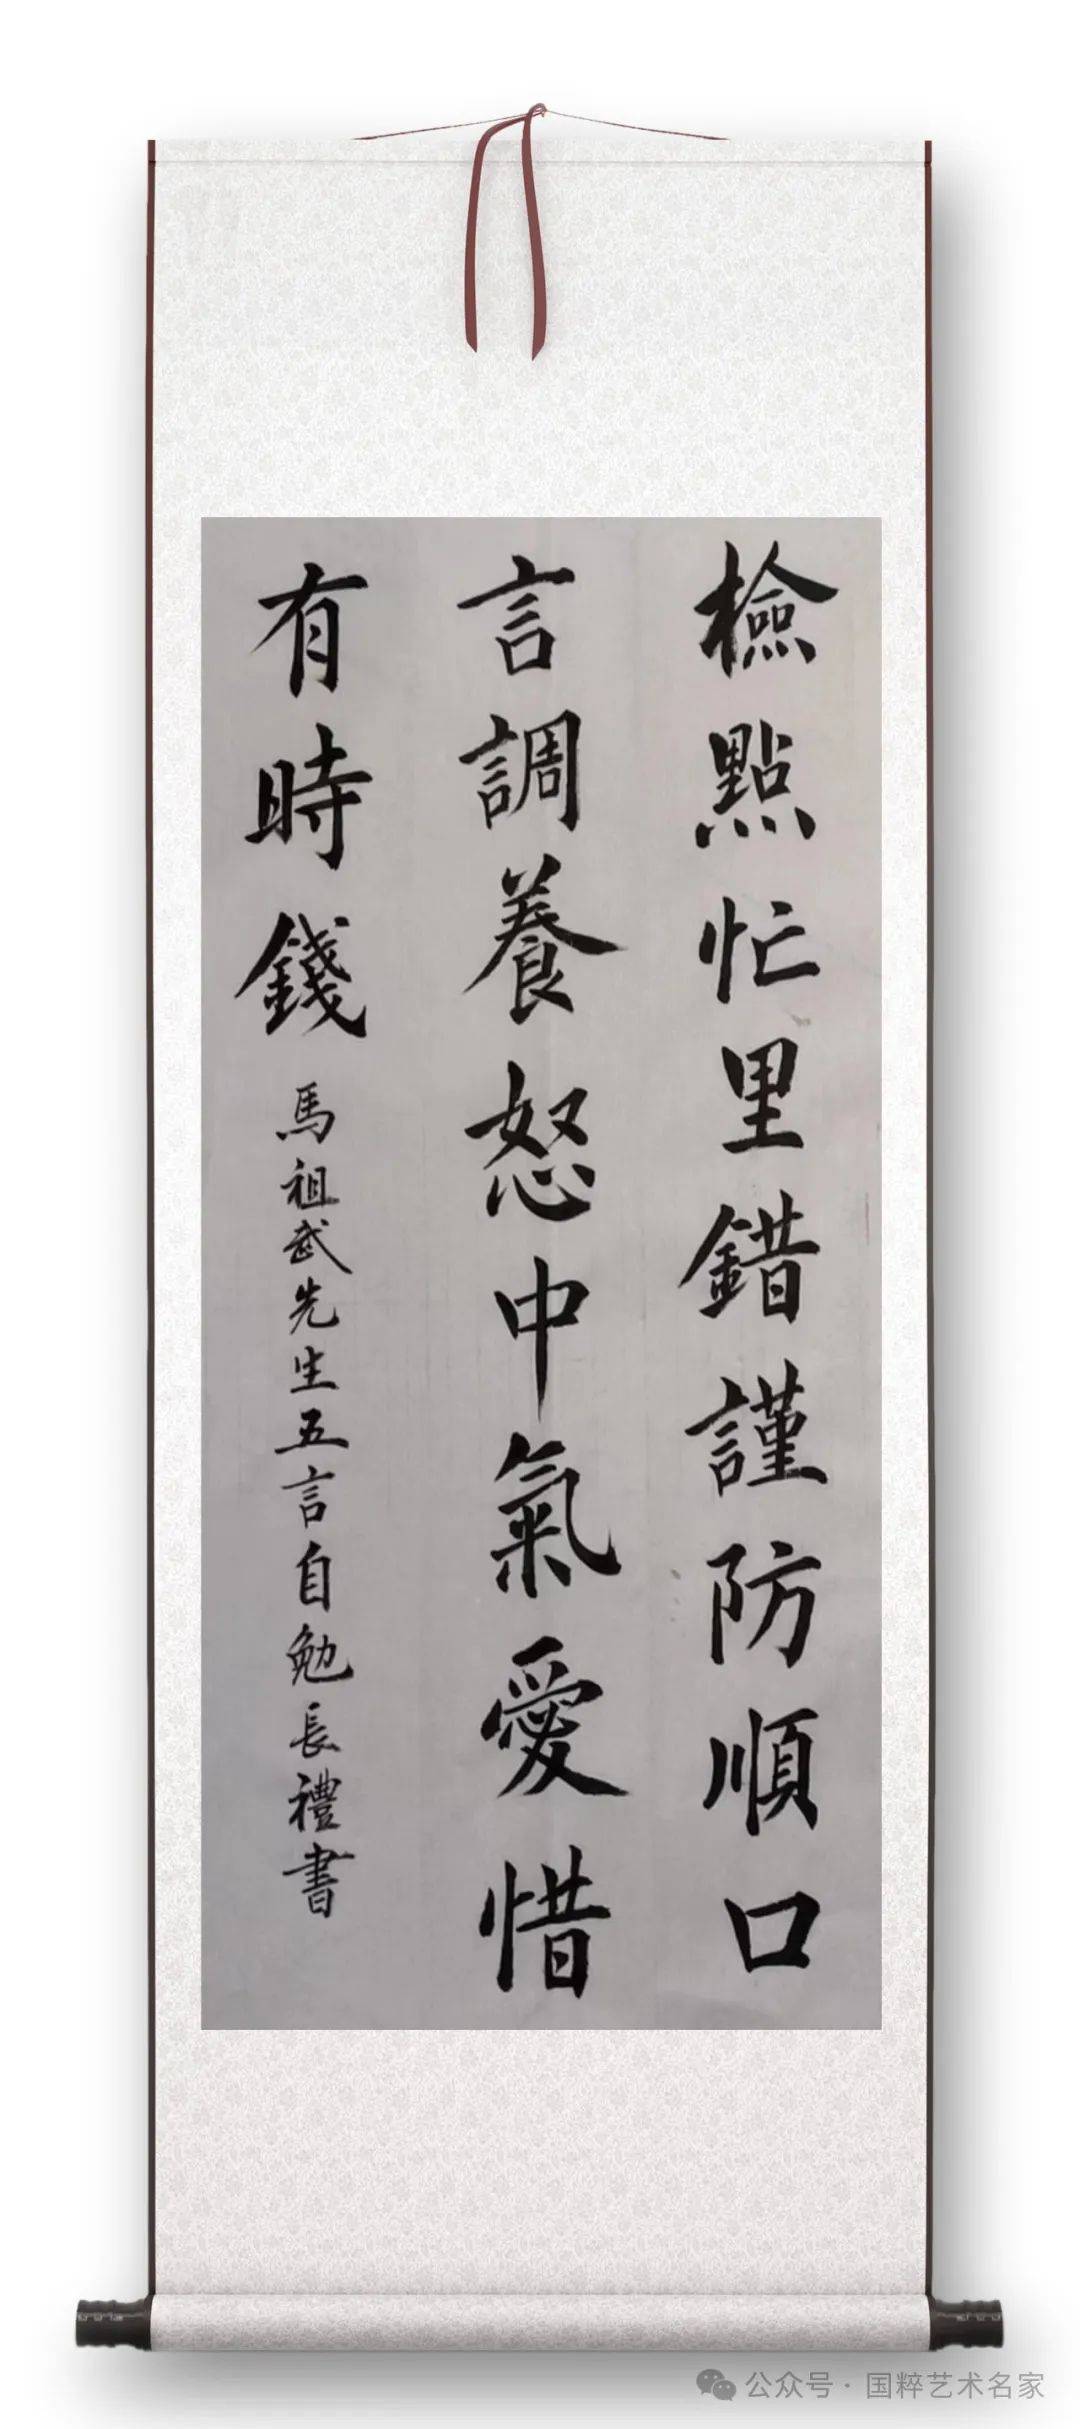 檢點忙里錯謹防順口
言調養怒中氣愛惜
有時錢
馬祖武先生五言自勉長禮書
公众号·国粹艺术名家